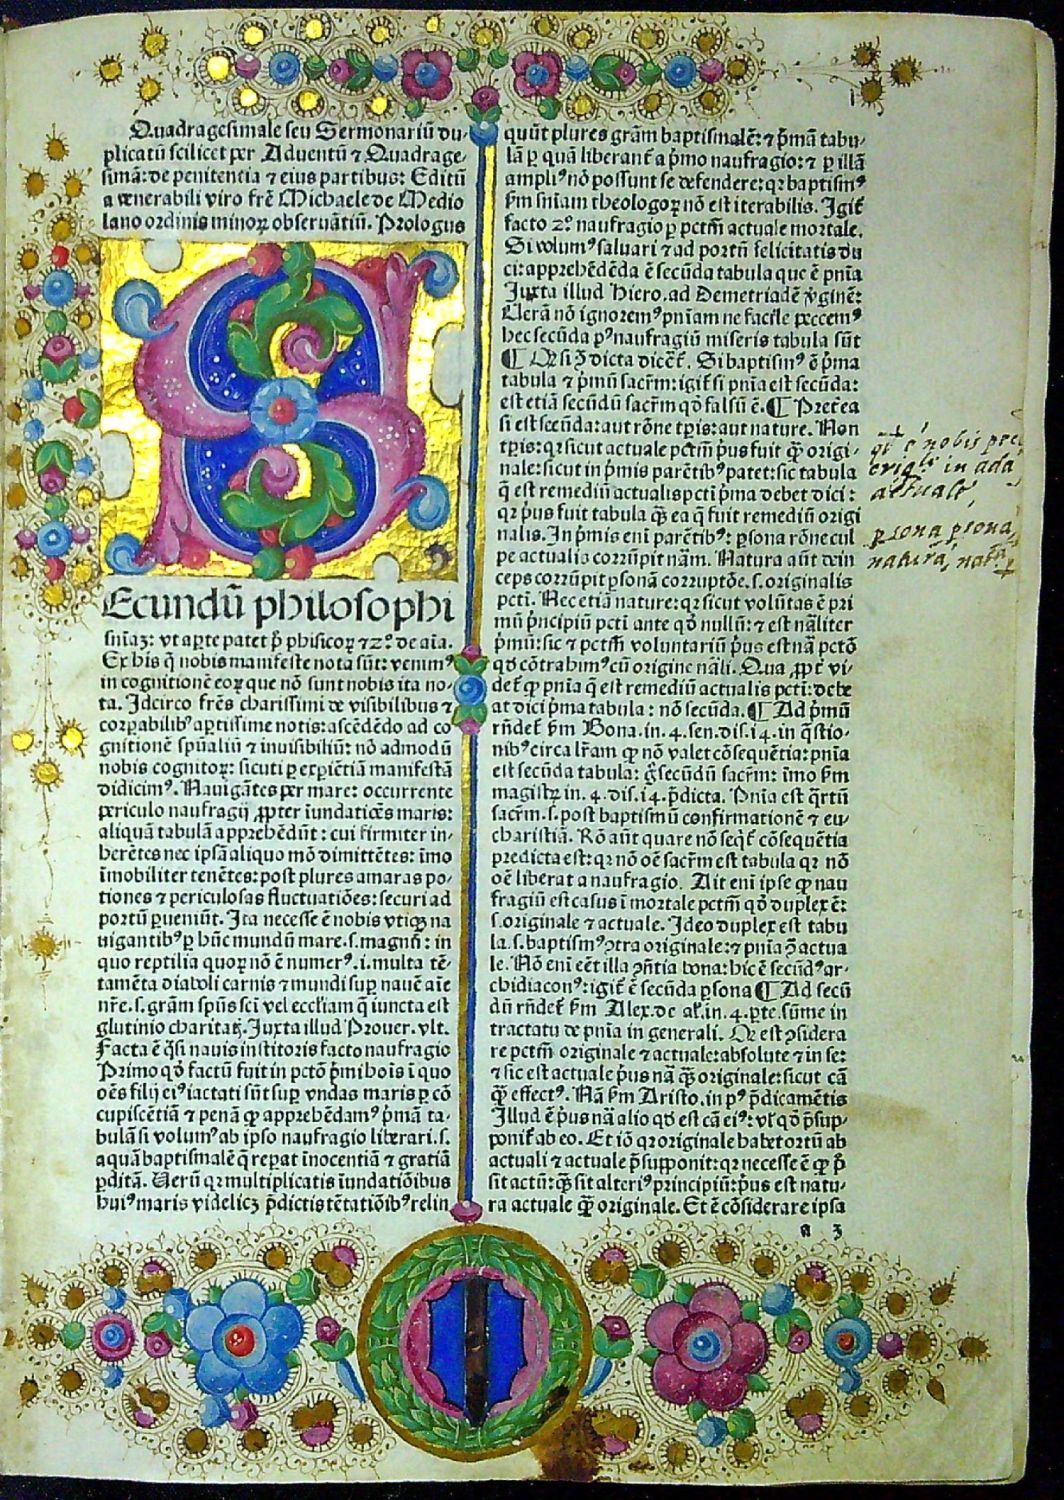 Quadragesimale seu Sermonariũ du-
plicatũ scilicet per Aduentũ ⁊ Quadrage-
simã: de penitentia ⁊ eius partibus: Editũ
a venerabili viro frẽ Michaele de Medio
lano ordinis minoꝝ obseruãtiũ. Prologus
Ecundũ philosophi
sniaꝫ: vt aperte patet ꝑ̃ phisicoꝝ ⁊ 2º de aĩa.
Ex his q̃ nobis manifeste nota sũt: venimꝰ
in cognitionẽ eoꝝ que nõ sunt nobis ita no-
ta. Idcirco frẽs charissimi de visibilibus ⁊
corꝑalibꝰ aptissime notis: ascẽdẽdo ad co
gnitionẽ spũaliũ ⁊ inuisibiliũ: nõ admodũ
nobis cognitoꝝ: sicuti ꝑ exꝑiẽtiã manifestã
didicimꝰ. Nauigãtes per mare: occurrente
periculo naufragij ꝓpter iundatiões maris:
aliquã tabulã apprehẽdũt: cui firmiter in-
herẽtes nec ipsã aliquo mõ dimittẽtes: ĩmo
ĩmobiliter tenẽtes: post plures amaras po-
tiones ⁊ periculosas fluctuatiões: securi ad
portũ ꝑueniũt. Ita necesse ẽ nobis vtiqꝫ na
uigantibꝰ ꝑ hũc mundũ mare .s. magnũ: in
quo reptilia quoꝝ nõ ẽ numerꝰ .i. multa tẽ-
tamẽta diaboli carnis ⁊ mundi suꝑ nauẽ aĩe
nr̃e .s. grãm spũs scĩ vel eccliam q̃ iuncta est
glutinio charitatꝭ. Juxta illud Prouer. vlt.
Facta ẽ q̃si nauis institoris facto naufragio
Primo qď factũ fuit in pctõ p̃mi hois ĩ quo
oẽs filij eiꝰ iactati sũt suꝑ vndas maris ꝑ cõ
cupiscẽtiã ⁊ penã ꝙ apprehẽdamꝰ p̃mã ta-
bulã si volumꝰ ab ipso naufragio liberari .s.
aquã baptismalẽ q̃ reꝑat ĩnocentiã ⁊ gratiã
ꝑditã. Uerũ qꝛ multiplicatis ĩundatiõibus
huiꝰ maris videlicꝫ p̃dictis tẽtatiõibꝰ relin
quũt plures grãm baptismalẽ: ⁊ p̃mã tabu-
lã ꝑ quã liberant̃ a p̃mo naufragio: ⁊ ꝑ illã
ampliꝰ nõ possunt se defendere: qꝛ baptismꝰ
ẜm sniam theologoꝝ nõ est iterabilis. Igit̃
facto 2º naufragio ꝑ pctm̃ actuale mortale.
Si volumꝰ saluari ⁊ ad portũ felicitatis du
ci: apprehẽdẽda ẽ secũda tabula que ẽ pnĩa
Juxta illud Hiero. ad Demetriadẽ v̓ginẽ:
Uerã nõ ignoremꝰ pnĩam ne facile peccemꝰ
hec secũda pꝰ naufragiũ miseris tabula sũt
¶ Qƺ si ꝯ̃ dicta dicet̃. Si baptismꝰ ẽ p̃ma
tabula ⁊ p̃mũ sacr̃m: igit̃ si pnĩa est secũda:
est etiã secũdũ sacr̃m qď falsũ ẽ. ¶ Pret̃ea
si est secũda: aut rõne tp̃is: aut nature. Non
tp̃is: qꝛ sicut actuale pctm̃ p̃us fuit ꝙ̃ origi-
nale: sicut in p̃mis parẽtibꝰ patet: sic tabula
q̃ est remediũ actualis pcti p̃ma debet dici:
qꝛ p̃us fuit tabula qꝫ̃ ea q̃ fuit remediũ origi
nalis. In p̃mis eni parẽtibꝰ: ꝑsona rõne cul
pe actualis corrũpit nãm. Natura aũt dein
ceps corrũpit ꝑsonã corruptõe .s. originalis
pcti. Nec etiã nature: qꝛ sicut volũtas ẽ pri
mũ p̃ncipiũ pcti ante qď nullũ: ⁊ est nãliter
p̃mũ: sic ⁊ pctm̃ voluntariũ p̃us est nã pctõ
qď cõtrahimꝰ cũ origine nãli. Qua ꝓpt̃ vi-
det̃ ꝙ pnĩa q̃ est remediũ actualis pcti: debe
at dici p̃ma tabula: nõ secũda. ¶ Ad p̃mũ
rñdet̃ ẜm Bona. in .4. sen. dis. 14. in q̃stio-
nibꝰ circa lr̃am ꝙ nõ valet cõsequẽtia: pnĩa
est secũda tabula: g̊ secũdũ sacr̃m: ĩmo ẜm
magistꝝ in .4. dis. 14. p̃dicta. Pnĩa est q̃rtũ
sacr̃m .s. post baptismũ confirmationẽ ⁊ eu-
charistiã. Rõ aũt quare nõ seqt̃ cõsequẽtia
predicta est: qꝛ nõ oẽ sacr̃m est tabula qꝛ nõ
oẽ liberat a naufragio. Ait eni ipse ꝙ nau
fragiũ est casus ĩ mortale pctm̃ qď duplex ẽ:
.s. originale ⁊ actuale. Ideo duplex est tabu
la .s. baptismꝰ ꝯtra originale: ⁊ pnĩa ꝯ̃ actua
le. Nõ eni eẽt illa ꝯñtia bona: hic ẽ secũdꝰ ar-
chidiaconꝰ: igit̃ ẽ secũda ꝑsona ¶ Ad secũ
dũ rñdet̃ ẜm Alex. de al̓. in .4. ꝑte. sũme in
tractatu de pnĩa in generali. Qƺ est ꝯsidera
re pctm̃ originale ⁊ actuale: absolute ⁊ in se:
⁊ sic est actuale p̃us nã qꝫ̃ originale: sicut cã
qꝫ̃ effectꝰ. Nã ẜm Aristo. in pꝰ p̃dicamẽtis
Illud ẽ p̃us nã alio qď est cã eiꝰ: vl̓ qď p̃sup-
ponit̃ ab eo. Et iõ qꝛ originale habet ortũ ab
actuali ⁊ actuale p̃supponit: qꝛ necesse ẽ ꝙ p̃
sit actũ: qꝫ̃ sit alteriꝰ principiũ: p̃us est natu-
ra actuale qꝫ̃ originale. Et ẽ cõsiderare ipsa
a 3
in ada
actuale,
ꝑsona ꝑsona,
naturã,